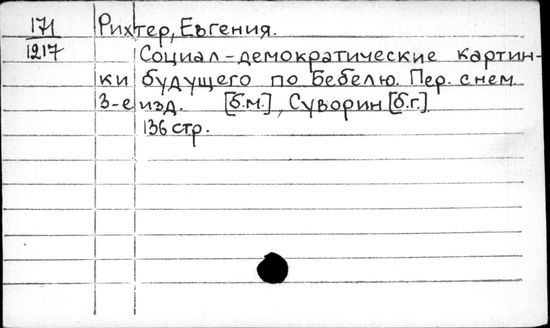 171 Рихтер, Евгения.
1217 Социал-демократические картин-
ки будущего по Бебелю. Пер. с нем.
3-е изд. [б.м.], Суворин [б.г.]
136 стр.